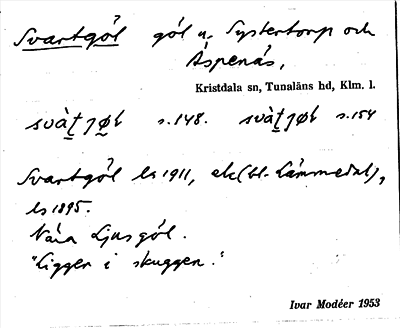 Svartgöl göl u. Systertorp och
Äspenäs,
Kristdala sn, Tunaläns hd, Klm. l.
svàṯ jøl s. 148. svàṯ jøl s. 154
Svartgöl ls 1911, ek (bl. Lämmedal),
ls 1895.
Nära Ljusgöl.
"Ligger i skuggen."
Ivar Modéer 1953